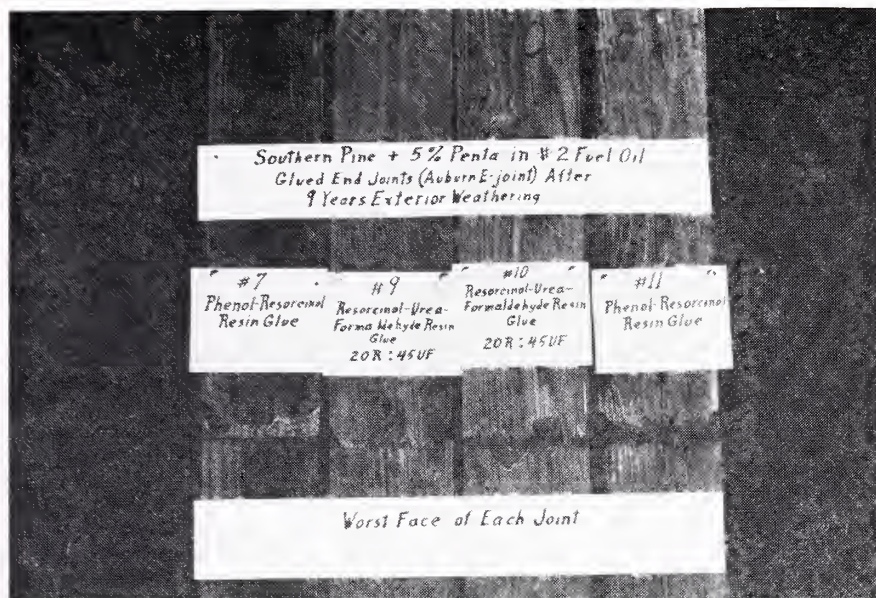 Southern Pine + 5% Penta in #2 Fuel Oil
Glued End Joints (Auburn E-joint) After
9 Years Exterior Weathering
#7
Phenol-Resorcinol
Resin Glue
#9
Resorcinol-Urea-
Formaldehyde Resin
Glue
20R:45UF
#10
Resorcinol-Urea-
Formaldehyde Resin
Glue
20R:45UF
#11
Phenol-Resorcinol
Resin Glue
Worst Face of Each Joint